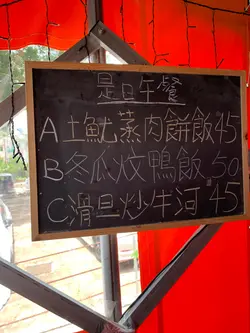 是日午餐
A土魷蒸肉餅飯45
B冬瓜炆鴨飯50
C滑旦炒牛河45